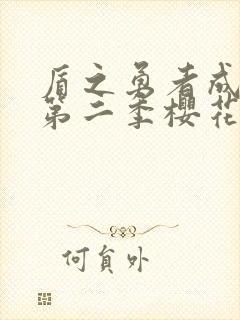 盾之勇者成
第二季樱花
何食外